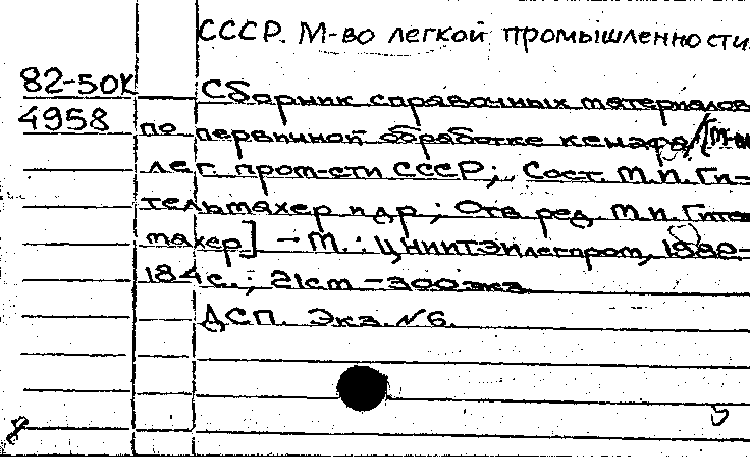 СССР. М-во легкой промышленности
82-50К Сборник справочных материалов
4958 по первичной обработке кенафа / [М-во
лег. пром-сти СССР; Сост. М.И. Ги-
тельмахер и др; Отв. ред. М.И. Гител
махер] - М. : ЦНИИТЭИлегпром, 1980-
184 с.; 21см - 300экз
ДСП. Экз. №6.